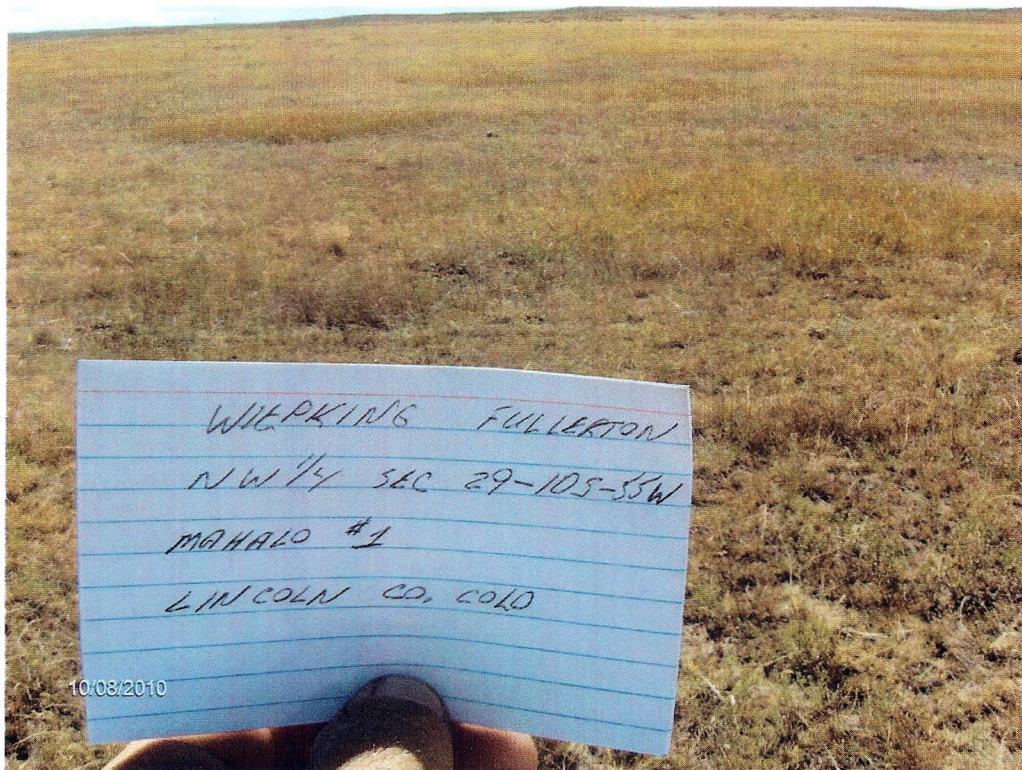 WIEPKING FULLERTON
NW 1/4 SEC 29-10S-55W
MAHALO #1
LINCOLN CO, COLO
10/08/2010